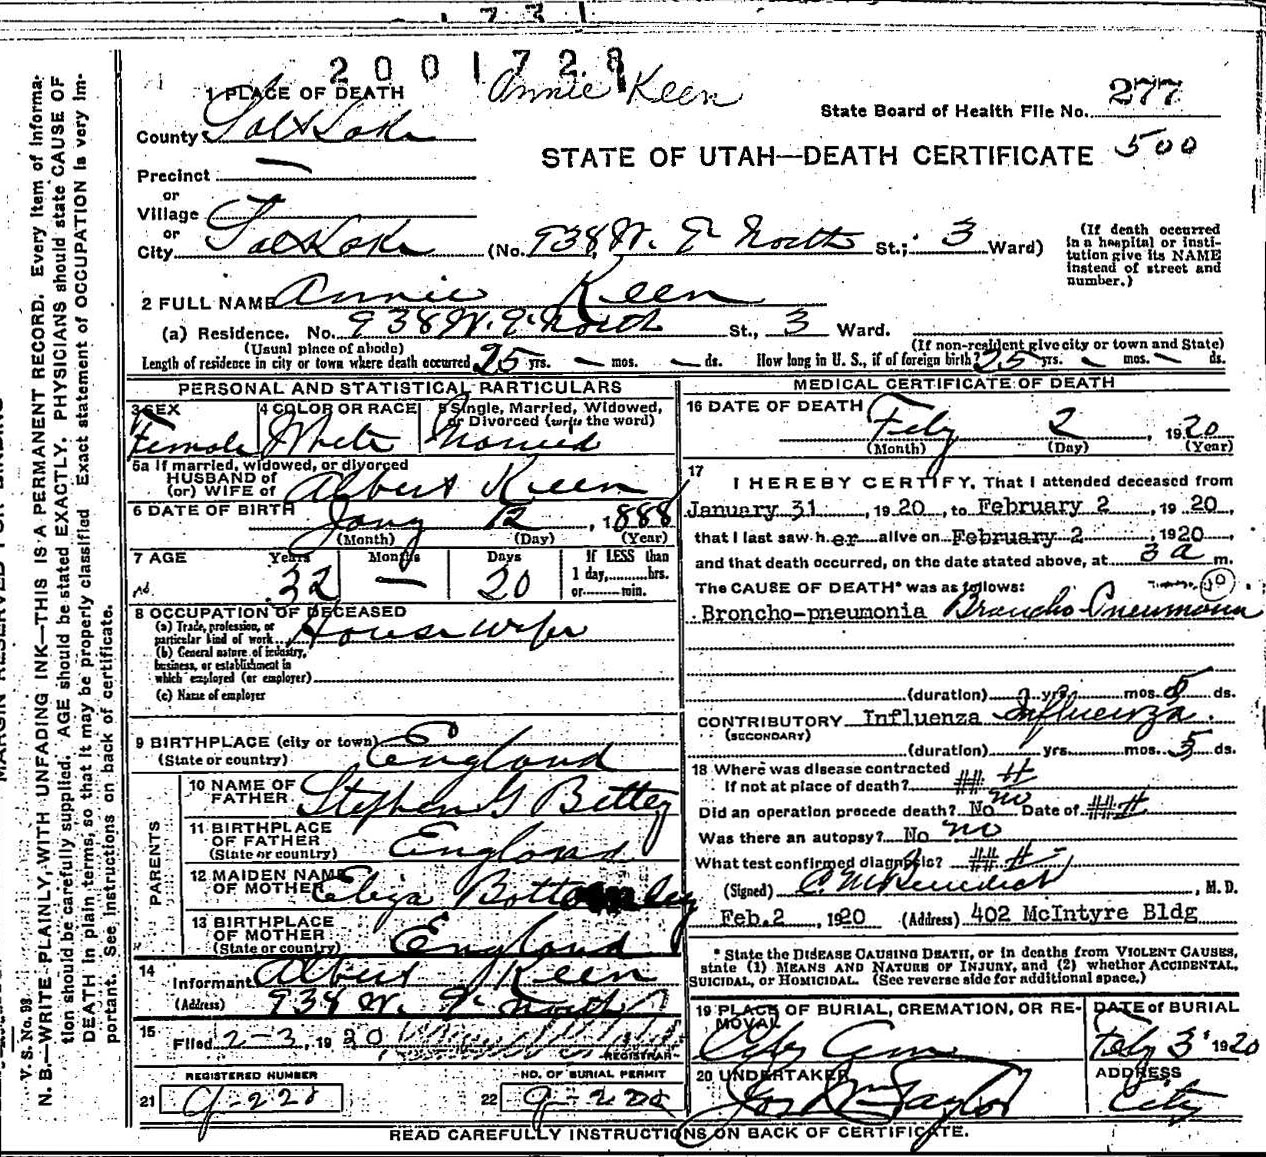 2001728
Annie Keen
1 PLACE OF DEATH
State Board of Health File No. 277
County Salt Lake
STATE OF UTAH—DEATH CERTIFICATE 500
Precinct —
or
Village
or
City Salt Lake (No. 938 W. North St.; 3 Ward)
(If death occurred in a hospital or institution give its NAME instead of street and number.)
2 FULL NAME Annie Keen
(a) Residence. No. 938 W. North St., 3 Ward.
(Usual place of abode) (If non-resident give city or town and State)
Length of residence in city or town where death occurred 25 yrs. — mos. — ds. How long in U. S., if of foreign birth? 25 yrs. — mos. — ds.
PERSONAL AND STATISTICAL PARTICULARS
3 SEX Female
4 COLOR OR RACE White
5 Single, Married, Widowed, or Divorced (write the word) Married
5a If married, widowed, or divorced
HUSBAND of
(or) WIFE of Albert Keen
6 DATE OF BIRTH Jany 12, 1888
(Month) (Day) (Year)
7 AGE Years 32 Months — Days 20 If LESS than 1 day, hrs. or min.
8 OCCUPATION OF DECEASED
(a) Trade, profession, or particular kind of work House wife
(b) General nature of industry, business, or establishment in which employed (or employer)
(c) Name of employer
9 BIRTHPLACE (city or town)
(State or country) England
PARENTS
10 NAME OF FATHER Stephen G Bettey
11 BIRTHPLACE OF FATHER (State or country) England
12 MAIDEN NAME OF MOTHER Eliza
13 BIRTHPLACE OF MOTHER (State or country) England
14 Informant Albert Keen
(Address) 938 W. North
15 Filed 2-3, 1920
REGISTRAR
REGISTERED NUMBER
21 9-228
NO. OF BURIAL PERMIT
22 9-228
MEDICAL CERTIFICATE OF DEATH
16 DATE OF DEATH Feby 2, 1920
(Month) (Day) (Year)
17 I HEREBY CERTIFY, That I attended deceased from
January 31, 1920, to February 2, 1920,
that I last saw her alive on February 2, 1920
and that death occurred, on the date stated above, at 3 a m.
The CAUSE OF DEATH* was as follows:
Broncho-pneumonia Broncho-Pneumonia
(duration) yrs. mos. 5 ds.
CONTRIBUTORY Influenza Influenza.
(SECONDARY)
(duration) yrs. mos. 5 ds.
18 Where was disease contracted
If not at place of death? ## #
Did an operation precede death? No no Date of ## #
Was there an autopsy? No no
What test confirmed diagnosis? ## #
(Signed) C M Benedict, M.D.
Feb. 2 1920 (Address) 402 McIntyre Bldg
* State the DISEASE CAUSING DEATH, or in deaths from VIOLENT CAUSES, state (1) MEANS AND NATURE OF INJURY, and (2) whether ACCIDENTAL, SUICIDAL, or HOMICIDAL. (See reverse side for additional space.)
19 PLACE OF BURIAL, CREMATION, OR REMOVAL City Cem
DATE of BURIAL Feby 3 1920
20 UNDERTAKER Jos Wm Taylor
ADDRESS City
READ CAREFULLY INSTRUCTIONS ON BACK OF CERTIFICATE.
V. S. No. 98.
N. B.—WRITE PLAINLY, WITH UNFADING INK—THIS IS A PERMANENT RECORD. Every item of information should be carefully supplied. AGE should be stated EXACTLY. PHYSICIANS should state CAUSE OF DEATH in plain terms, so that it may be properly classified. Exact statement of OCCUPATION is very important. See instructions on back of certificate.